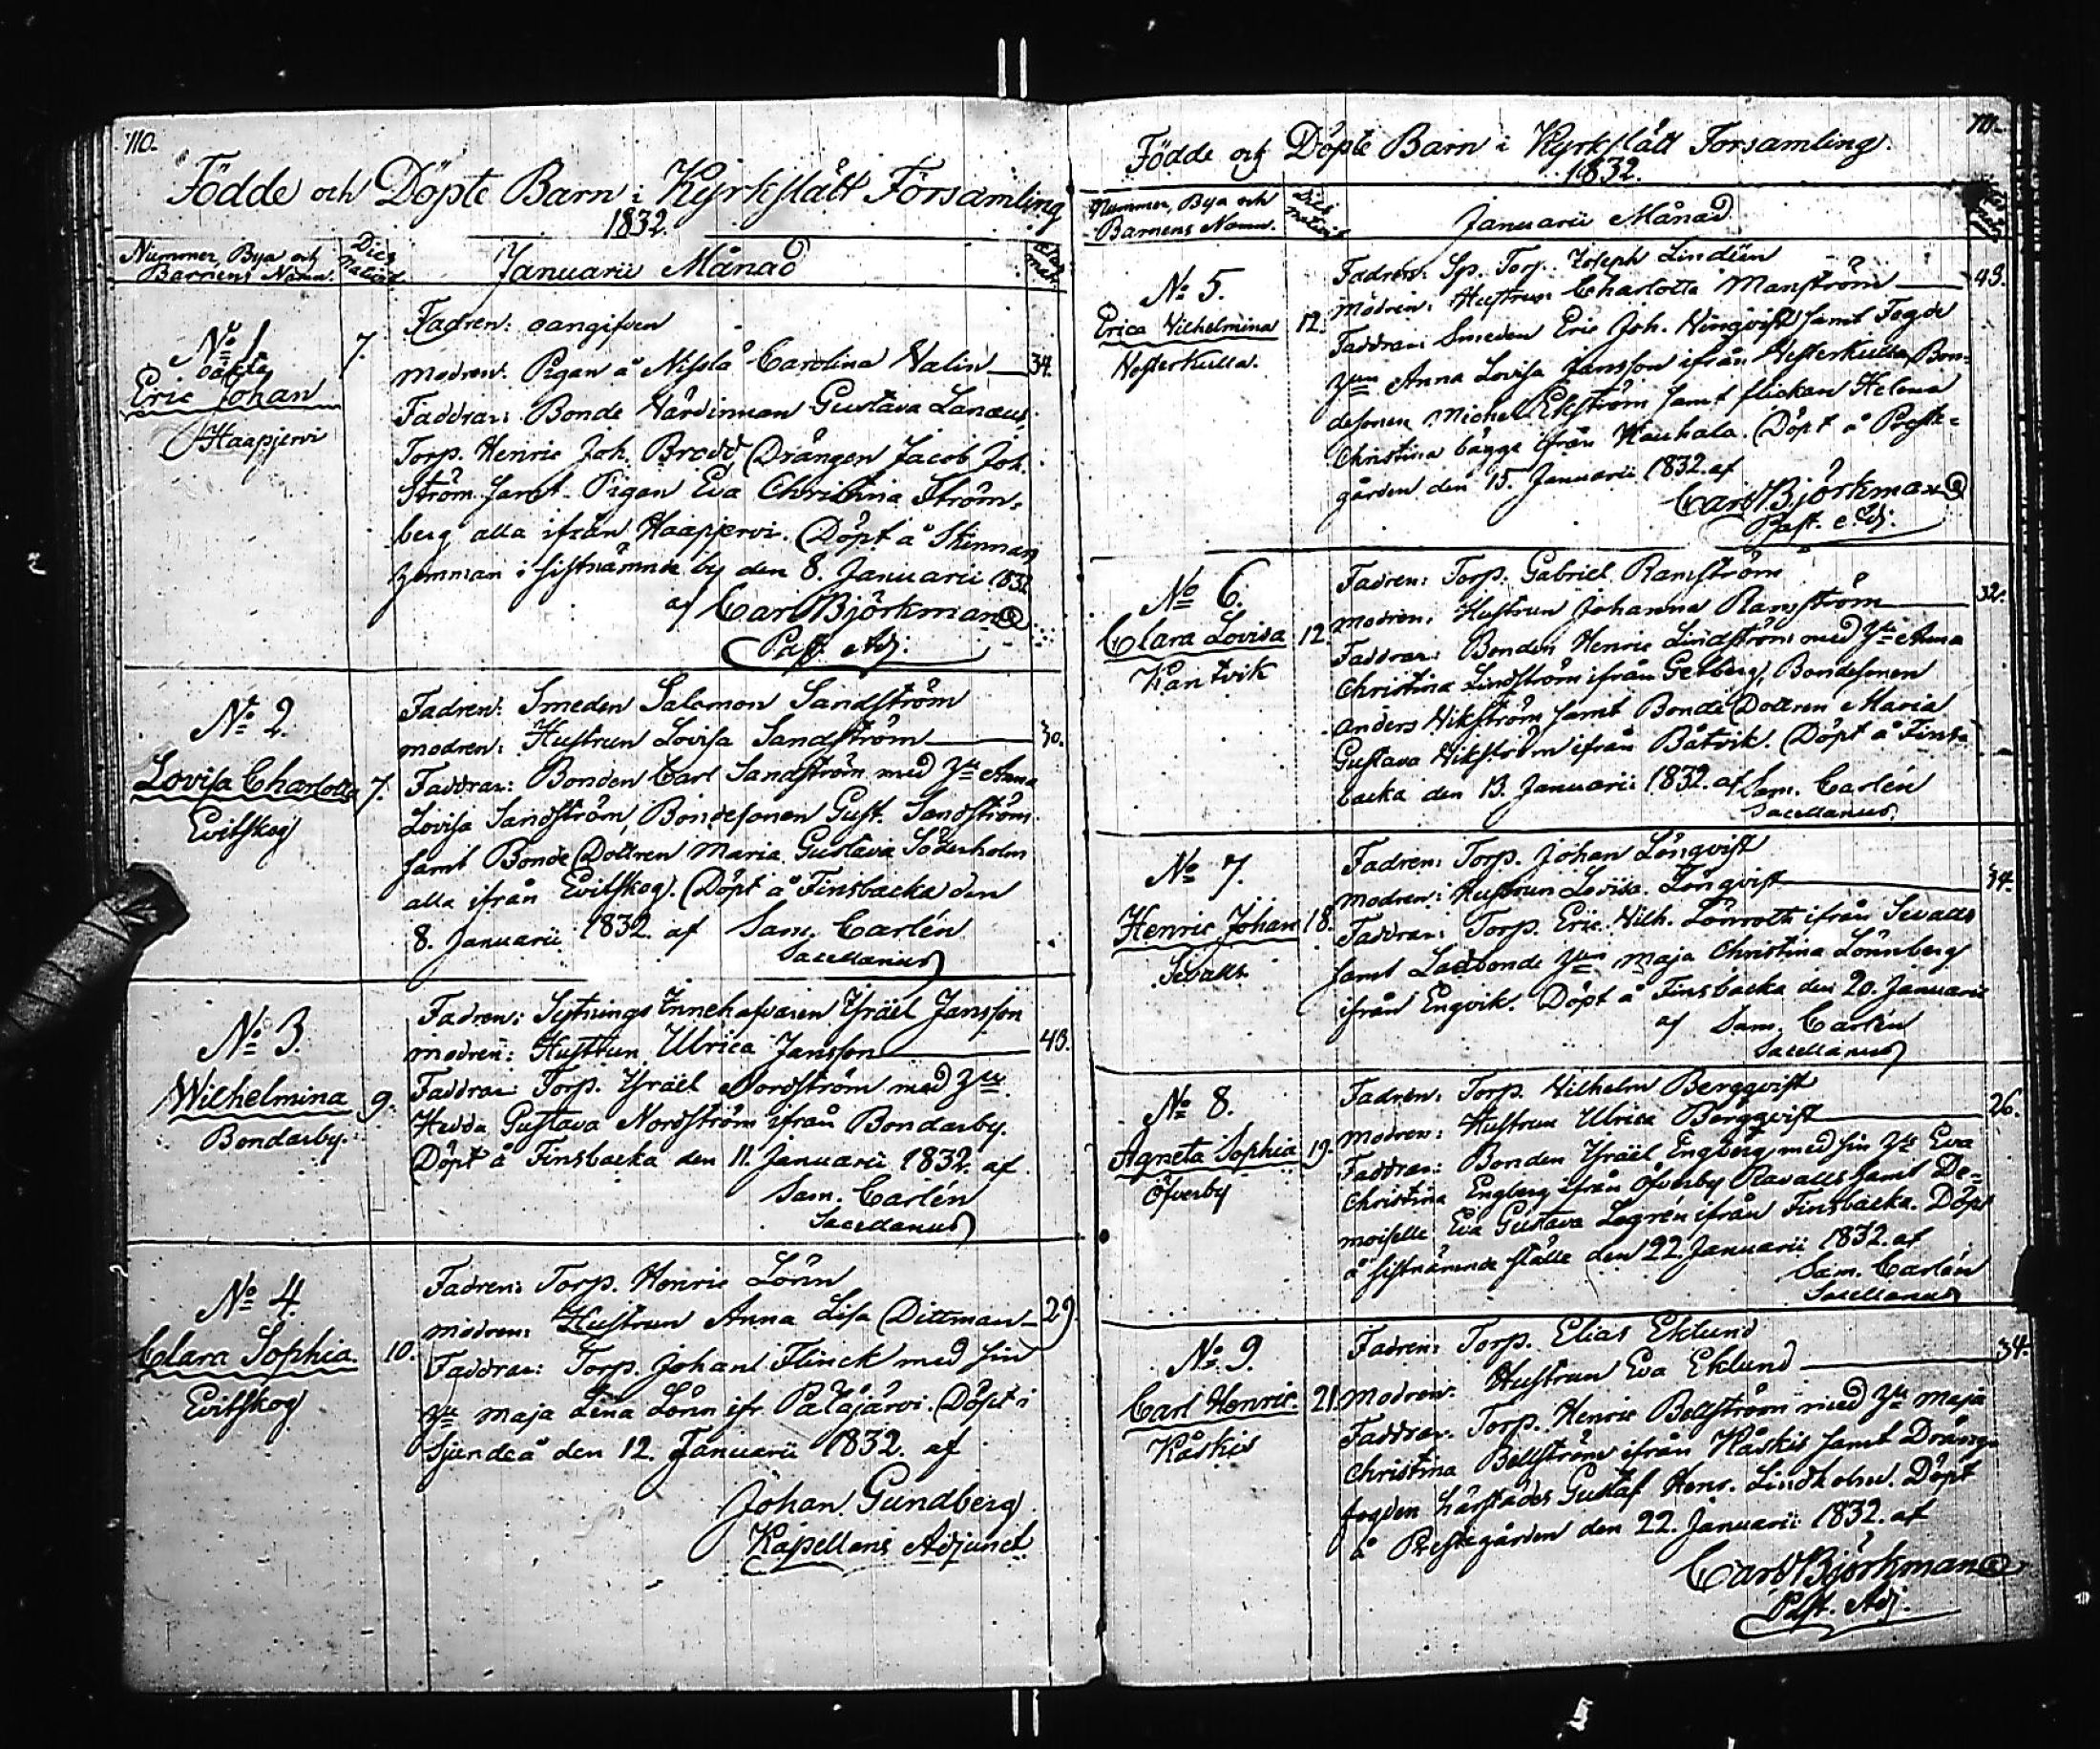 110.
Födde och Döpte Barn i Kyrkslätt Församling
1832.
Nummer, Bya och
Barnens Namn.
Dies
Januarii Månad
No 1
oäkta
Eric Johan
Haapjervi
7.
Fadren: oangifven
Modren: Pigan å Nissla Carolina Valin
34.
Faddrar: Bonde Värdinnan Gustava Lanæus,
Torp. Henric Joh. Brodd Drängen Jacob Joh.
Ström samt Pigan Eva Christina Ström-
berg alla ifrån Haapjervi. Döpt å
i sistnämnde by den 8. Januarii 1832
af Carl Björkman
Past. Adj.
No 2.
Lovisa Charlotta
Evitskog
7.
Fadren: Smeden Salomon Sandström
modren: Hustrun Lovisa Sandström
30.
Faddrar: Bonden Carl Sandström med Anna
Lovisa Sandström, Bondesonen Gust. Sandström
samt Bonde Dottren Maria Gustava Söderholm
alla ifrån Evitskog. Döpt å Finsbacka den
8. Januarii 1832. af Sam. Carlén
Sacellanus
No 3.
Wilhelmina
Bondarby.
9.
Fadren: Sytnings Innehafvaren Israël Jansson
modren: Hustrun Ulrica Jansson
43.
Faddrar: Torp. Israël Nordström med
Hedda Gustava Nordström ifrån Bondarby.
Döpt å Finsbacka den 11. Januarii 1832. af
Sam. Carlén
Sacellanus
No 4.
Clara Sophia.
Evitskog
10.
Fadren: Torp. Henric Lönn
modren: Hustrun Anna Lisa Dittman
29
Faddrar: Torp. Johan Flinck med sin
Maja Lena Lönn ifr. Palajärvi. Döpt i
Sjundeå den 12. Januarii 1832. af
Johan Gundberg
Kapellans Adjunct
111.
Födde och Döpte Barn i Kyrkslätt Forsamling.
1832.
Nummer, Bya och
Barnens Namn.
Dies
Januarii Månad
No 5.
Erica Wilhelmina
Vesterkulla.
12.
Fadren: Sp. Torp. Joseph Lindén
Modren: Hustrun Charlotta Manström
43.
Faddrar: Smeden Eric Joh. Vingvist samt Fogde
Anna Lovisa Jansson ifrån Vesterkulla, Bon-
desonen Michel Ekström samt flickan Helena
Christina bägge ifrån Wauhala. Döpt å Prest-
gården den 15. Januarii 1832. af
Carl Björkman
Past. Adj.
No 6.
Clara Lovisa
Kantvik
12.
Fadren: Torp. Gabriel Ramström
modren: Hustrun Johanna Ramström
32.
Faddrar: Bonden Henric Lindström med Anna
Christina Lindström ifrån Getberg, Bondesonen
Anders Wikström samt Bonde Dottren Maria
Gustava Wikström ifrån Båtvik. Döpt å Fins-
backa den 13. Januarii 1832. af Sam. Carlén
Sacellanus
No 7.
Henric Johan
Sevalls
18.
Fadren: Torp. Johan Lönqvist
modren: Hustrun Lovisa Lönqvist
34.
Faddrar: Torp. Eric Wilh. Lönroth ifrån Sevalls
samt Ladbonde Maja Christina Lönnberg
ifrån Engvik. Döpt å Finsbacka den 20. Januarii
af Sam. Carlén
Sacellanus
No 8.
Agneta Sophia
Öfverby
19.
Fadren: Torp. Vilhelm Bergqvist
modren: Hustrun Ulrica Bergqvist
26.
Faddrar: Bonden Israël Engberg med sin Eva
Christina Engberg ifrån Öfverby Ravalls samt De-
moiselle Eva Gustava Legrén ifrån Finsbacka. Döpt
å sistnämnde ställe den 22. Januarii 1832. af
Sam. Carlén
Sacellanus
No 9.
Carl Henric.
Käskis
21.
Fadren: Torp. Elias Eklund
modren: Hustrun Eva Eklund
34.
Faddrar: Torp. Henric Bellström med Maja
Christina Bellström ifrån Käskis samt Dränge-
fogden härstädes Gustaf Henr. Lindholm. Döpt
å Prestegården den 22. Januarii 1832. af
Carl Björkman
Past. Adj.